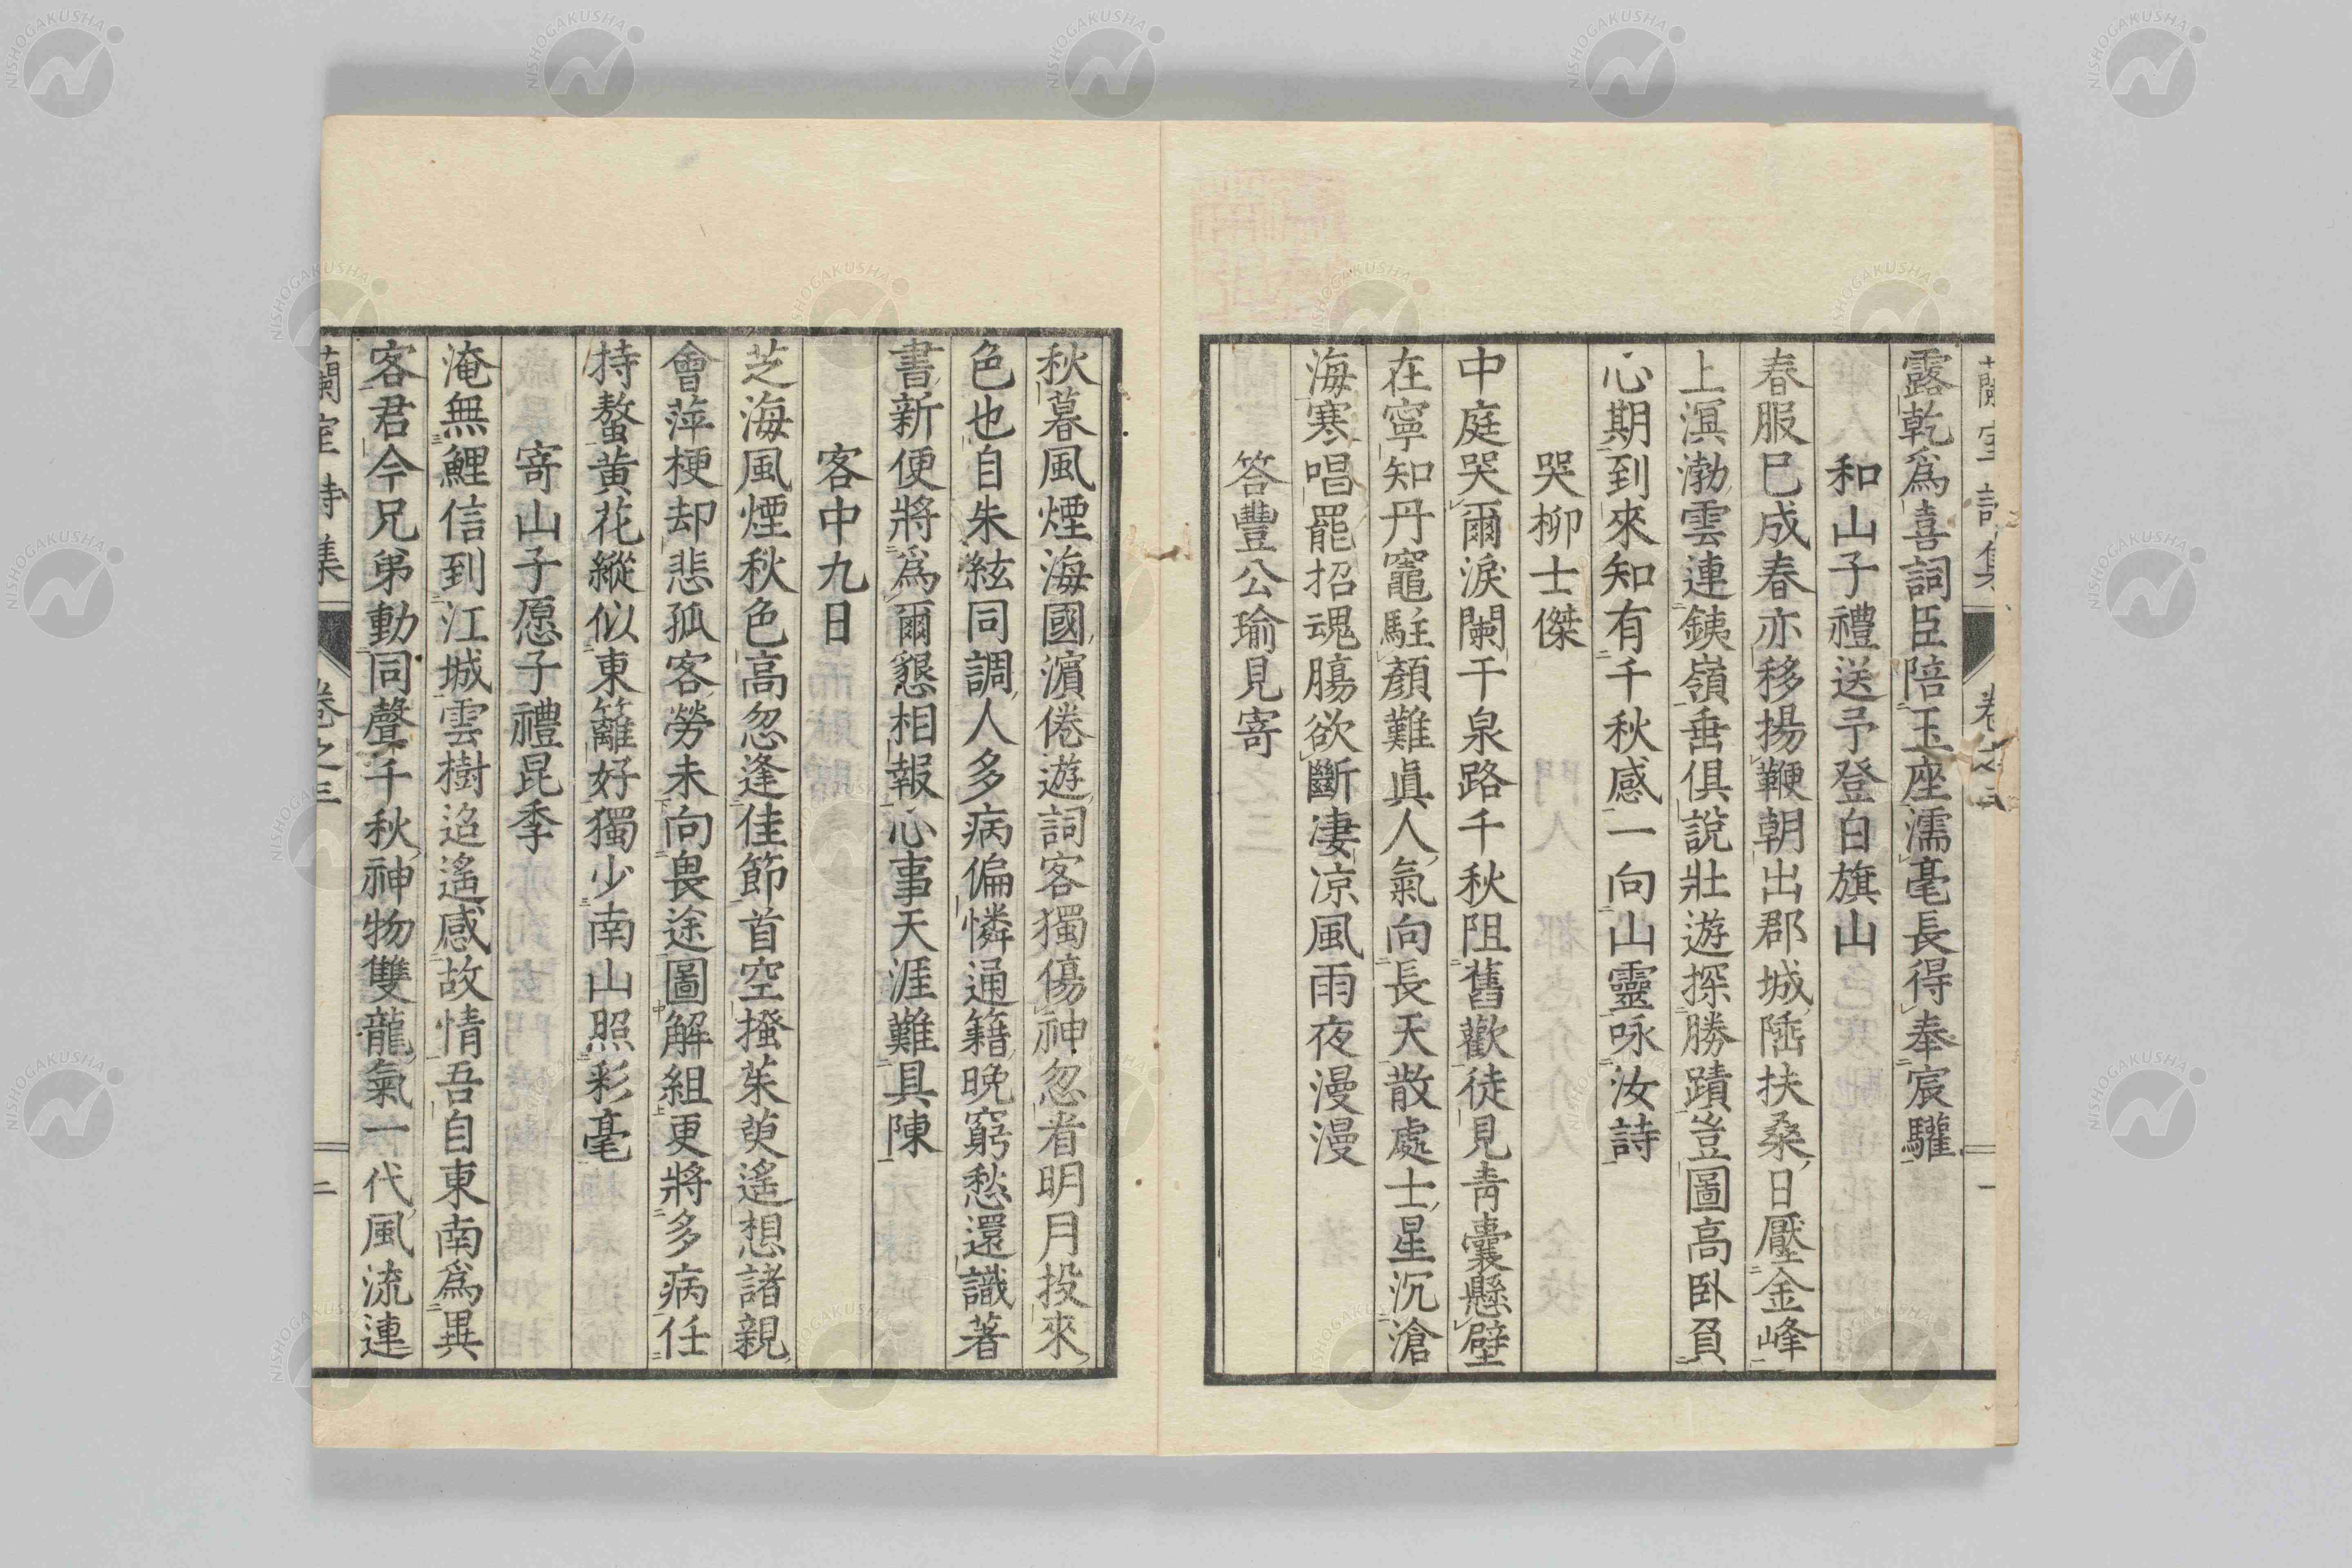 蘭室詩集 卷之三 一
露乾爲喜詞臣陪玉座濡毫長得奉宸驩
和山子禮送予登白旗山
春服已成春亦移揚鞭朝出郡城陲扶桑日壓金峰
上溟渤雲連銕嶺垂俱說壯遊探勝蹟豈圖高臥負
心期到來知有千秋感一向山靈咏汝詩
哭柳士傑
中庭哭爾淚闌干泉路千秋阻舊歡徒見靑囊懸壁
在寧知丹竈駐顏難眞人氣向長天散處士星沉滄
海寒唱罷招魂膓欲斷凄凉風雨夜漫漫
答豐公瑜見寄
秋暮風煙海國濵倦遊詞客獨傷神忽看明月投來
色也自朱絃同調人多病偏憐通籍晚窮愁還識著
書新便將爲爾懇相報心事天涯難具陳
客中九日
芝海風煙秋色高忽逢佳節首空搔茱萸遙想諸親
會萍梗却悲孤客勞未向畏途圖解組更將多病任
持螯黄花縱似東籬好獨少南山照彩毫
寄山子愿子禮昆季
淹無鯉信到江城雲樹迢遙感故情吾自東南爲異
客君今兄弟動同聲千秋神物雙龍氣一代風流連
蘭室詩集 卷之三 二